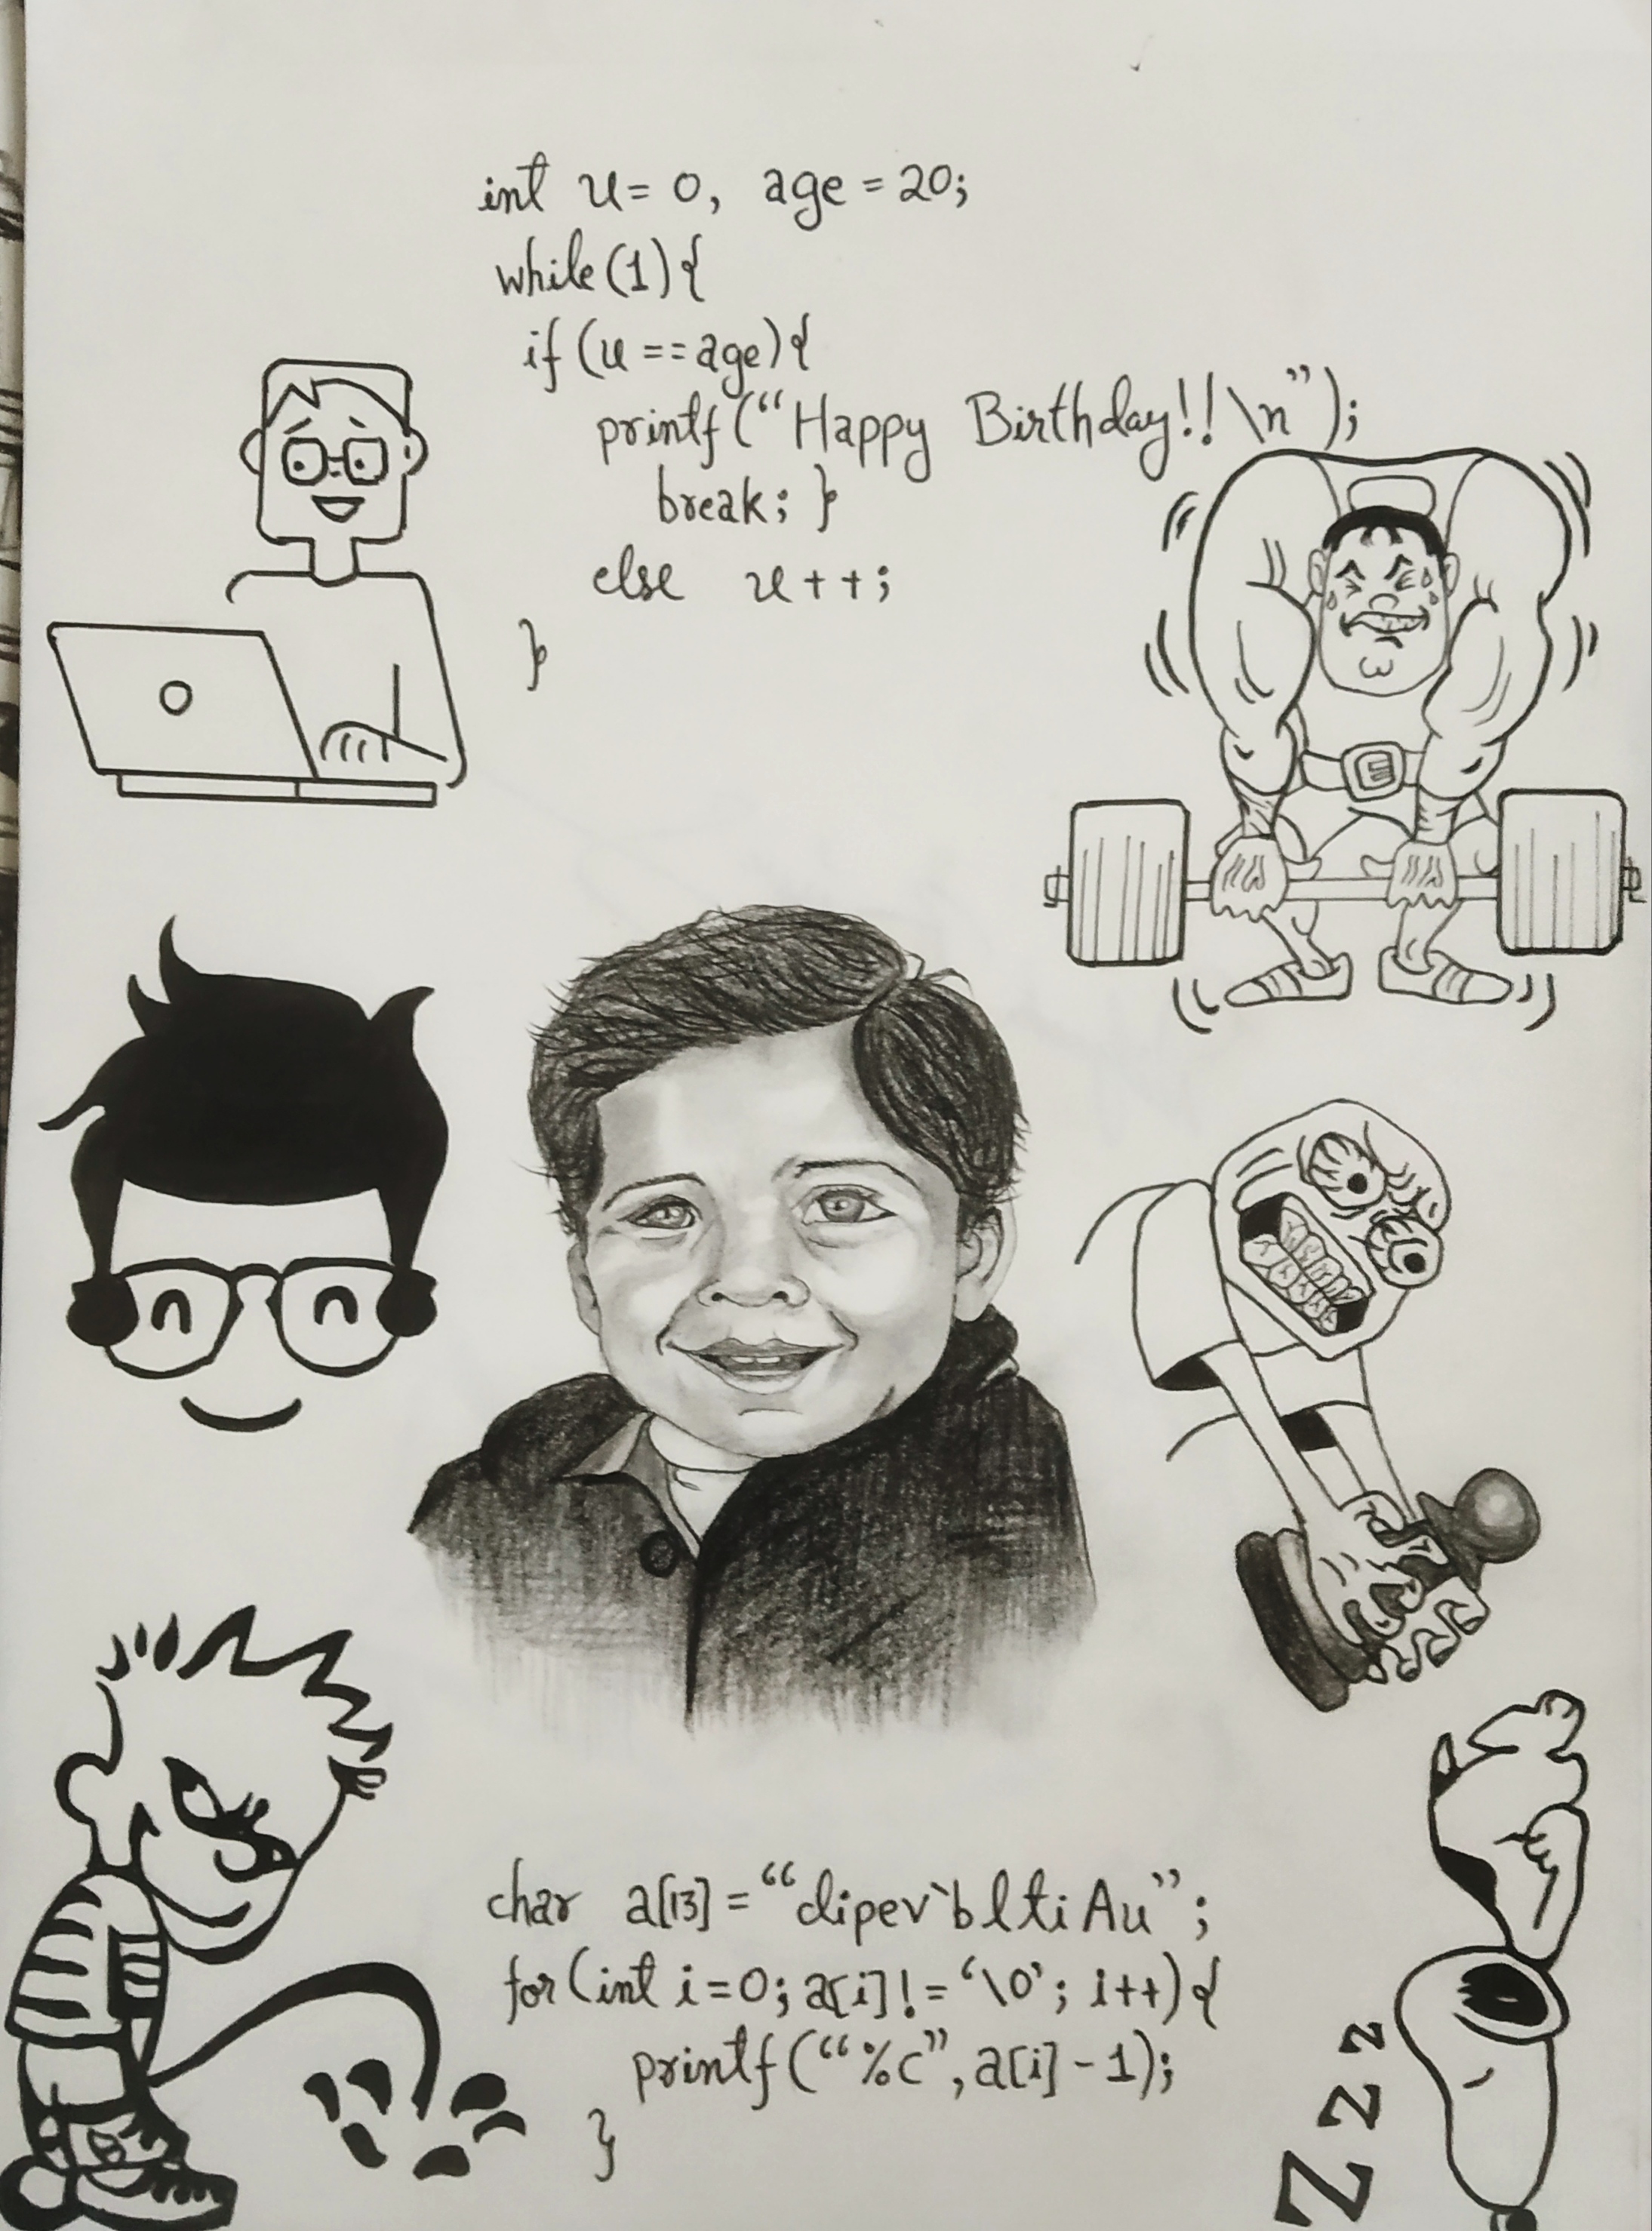 int u= 0, age = 20;
while(1){
if (u ==age){
printf("Happy Birthday!!\n");
break; }
else u++;
}
E
char a[13]="dipev`bltiAu";
for(int i=0; a[i]!='\0'; i++){
printf("%c",a[i]-1);
}
Z z z